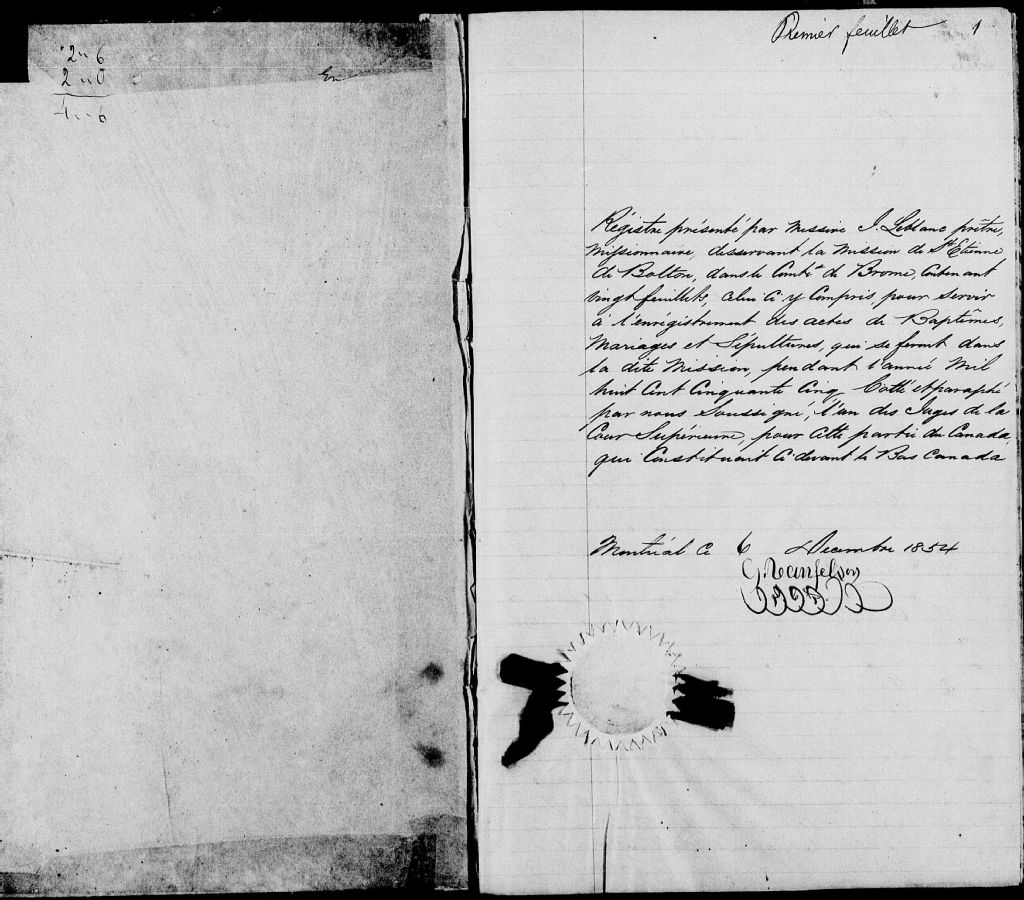 2 " 6
2 " 0
4 " 6
Premier feuillet 1
Régistre présenté par Messire J. Leblanc prêtre,
Missionnaire, desservant la Mission de St Etienne
de Bolton, dans le Comté de Brome, Contenant
vingt feuillets, celui Ci y Compris, pour servir
à l'enrégistrement des actes de Baptêmes,
Mariages et Sépultures, qui se feront dans
la dite Mission, pendant l'année Mil
huit Cent Cinquante Cinq Cotté et paraphé
par nous Soussigné, l'un des Juges de la
Cour Supérieure, pour Cette partie du Canada,
qui Constituait Ci devant le Bas Canada
Montréal Ce 6 Decembre 1854